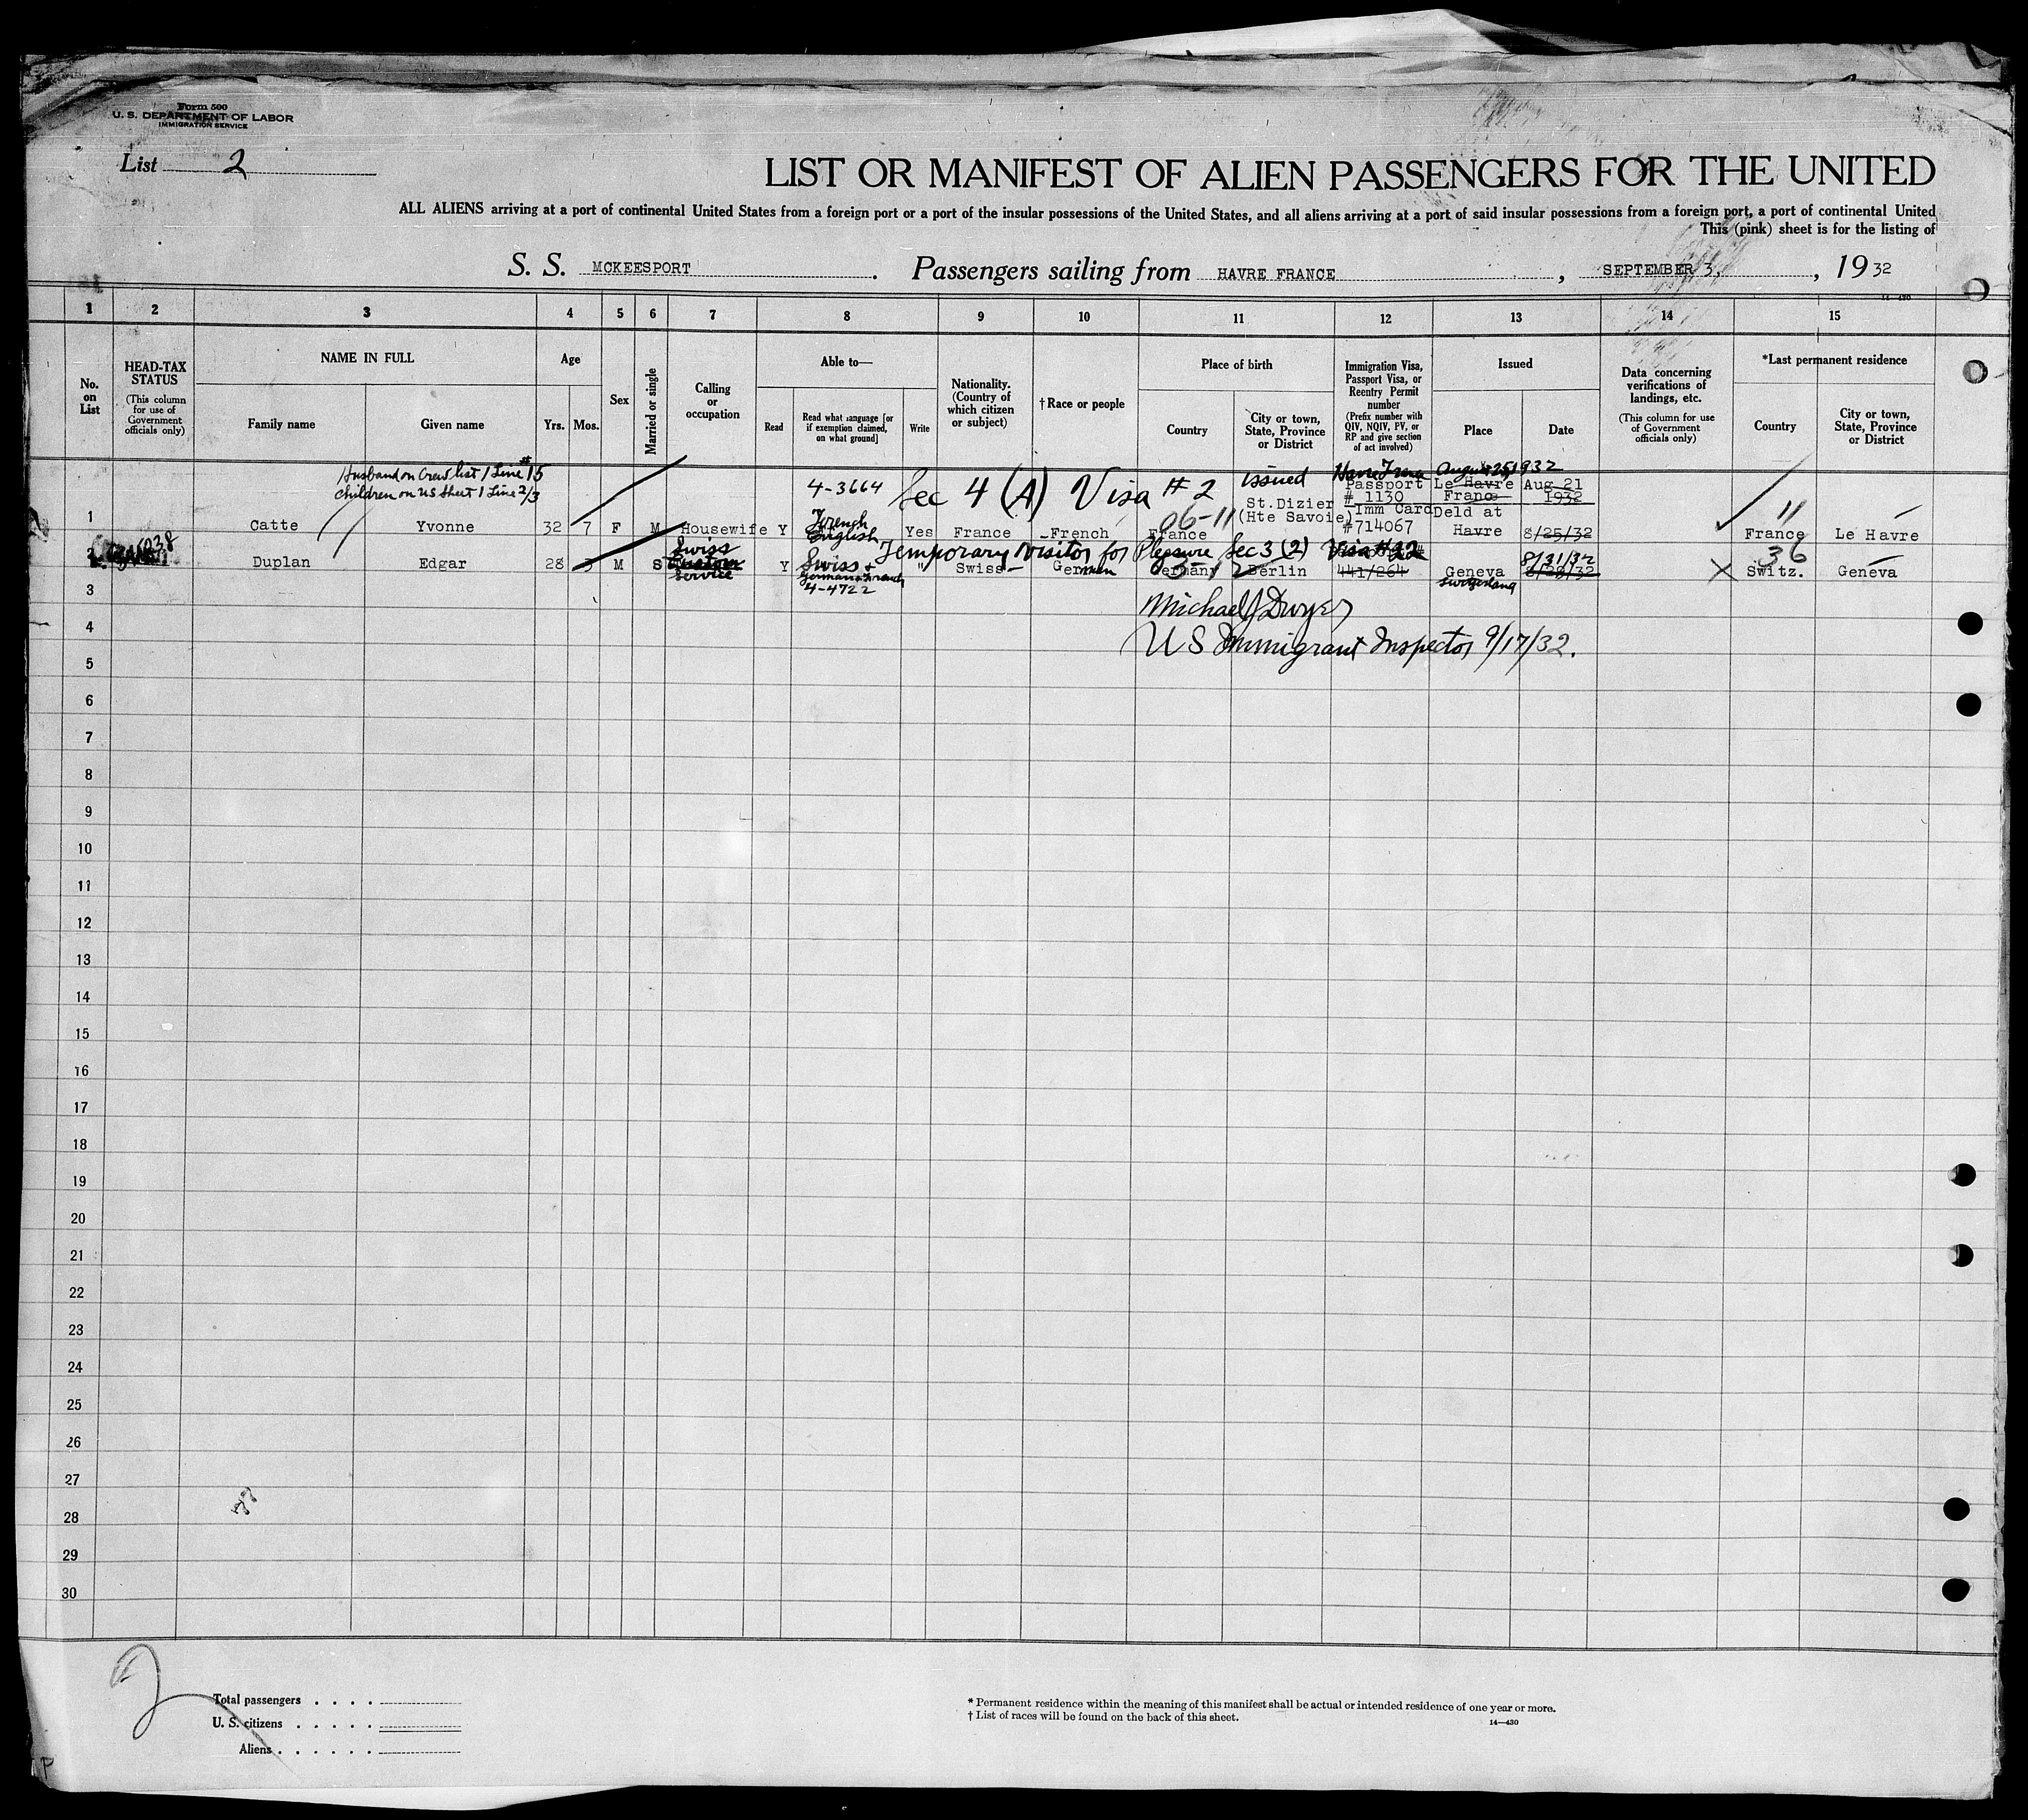 Form 500
U. S. DEPARTMENT OF LABOR
IMMIGRATION SERVICE
List 2
LIST OR MANIFEST OF ALIEN PASSENGERS FOR THE UNITED
ALL ALIENS arriving at a port of continental United States from a foreign port or a port of the insular possessions of the United States, and all aliens arriving at a port of said insular possessions from a foreign port, a port of continental United
This (pink) sheet is for the listing of
S. S. MCKEESPORT. Passengers sailing from HAVRE FRANCE, SEPTEMBER 3, 1932
14-430
1 2 3 4 5 6 7 8 9 10 11 12 13 14 15
No. on List
HEAD-TAX STATUS
(This column for use of Government officials only)
NAME IN FULL
Family name Given name
Age
Yrs. Mos.
Sex
Married or single
Calling or occupation
Able to—
Read
Read what language [or if exemption claimed, on what ground]
Write
Nationality. (Country of which citizen or subject)
†Race or people
Place of birth
Country
City or town, State, Province or District
Immigration Visa, Passport Visa, or Reentry Permit number
(Prefix number with QIV, NQIV, PV, or RP and give section of act involved)
Issued
Place Date
Data concerning verifications of landings, etc.
(This column for use of Government officials only)
*Last permanent residence
Country
City or town, State, Province or District
Husband on Crew list 1 Line #15
Children on US Sheet 1 Line 2/3
4-3664 Sec 4 (A) Visa #2 issued Havre France August 25 1932
Passport Le Havre Aug 21
# 1130 France 1932
St. Dizier
(Hte Savoie)
Imm Card Deld at
#714067
06-11
11
1 Catte Yvonne 32 7 F M Housewife Y French English Yes France French France Havre 8/25/32 France Le Havre
Temporary visitor for Pleasure Sec 3 (2) Visa #22 8/31/32
36
2 Duplan Edgar 28 5 M S Swiss Service Y Swiss + German + French " Swiss German Germany Berlin 441/264 Geneva Switzerland 8/29/32 Switz. Geneva
4-4722
3
Michael J Dwyer
4
US Immigrant Inspector 9/17/32.
5
6
7
8
9
10
11
12
13
14
15
16
17
18
19
20
21
22
23
24
25
26
27
28
29
30
2
Total passengers
U. S. citizens
Aliens
* Permanent residence within the meaning of this manifest shall be actual or intended residence of one year or more.
† List of races will be found on the back of this sheet.
14—430
P